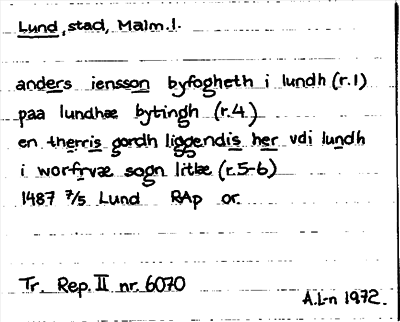 Lund, stad, Malm.l.
anders iensson byfogheth i lundh (r.1)
paa lundhæ bytingh (r.4)
en therris gordh liggendis her vdi lundh
i worfrvæ sogn litlæ (r.5-6)
1487 7/5 Lund RAp or.
Tr. Rep. II nr. 6070
A.L-n 1972.